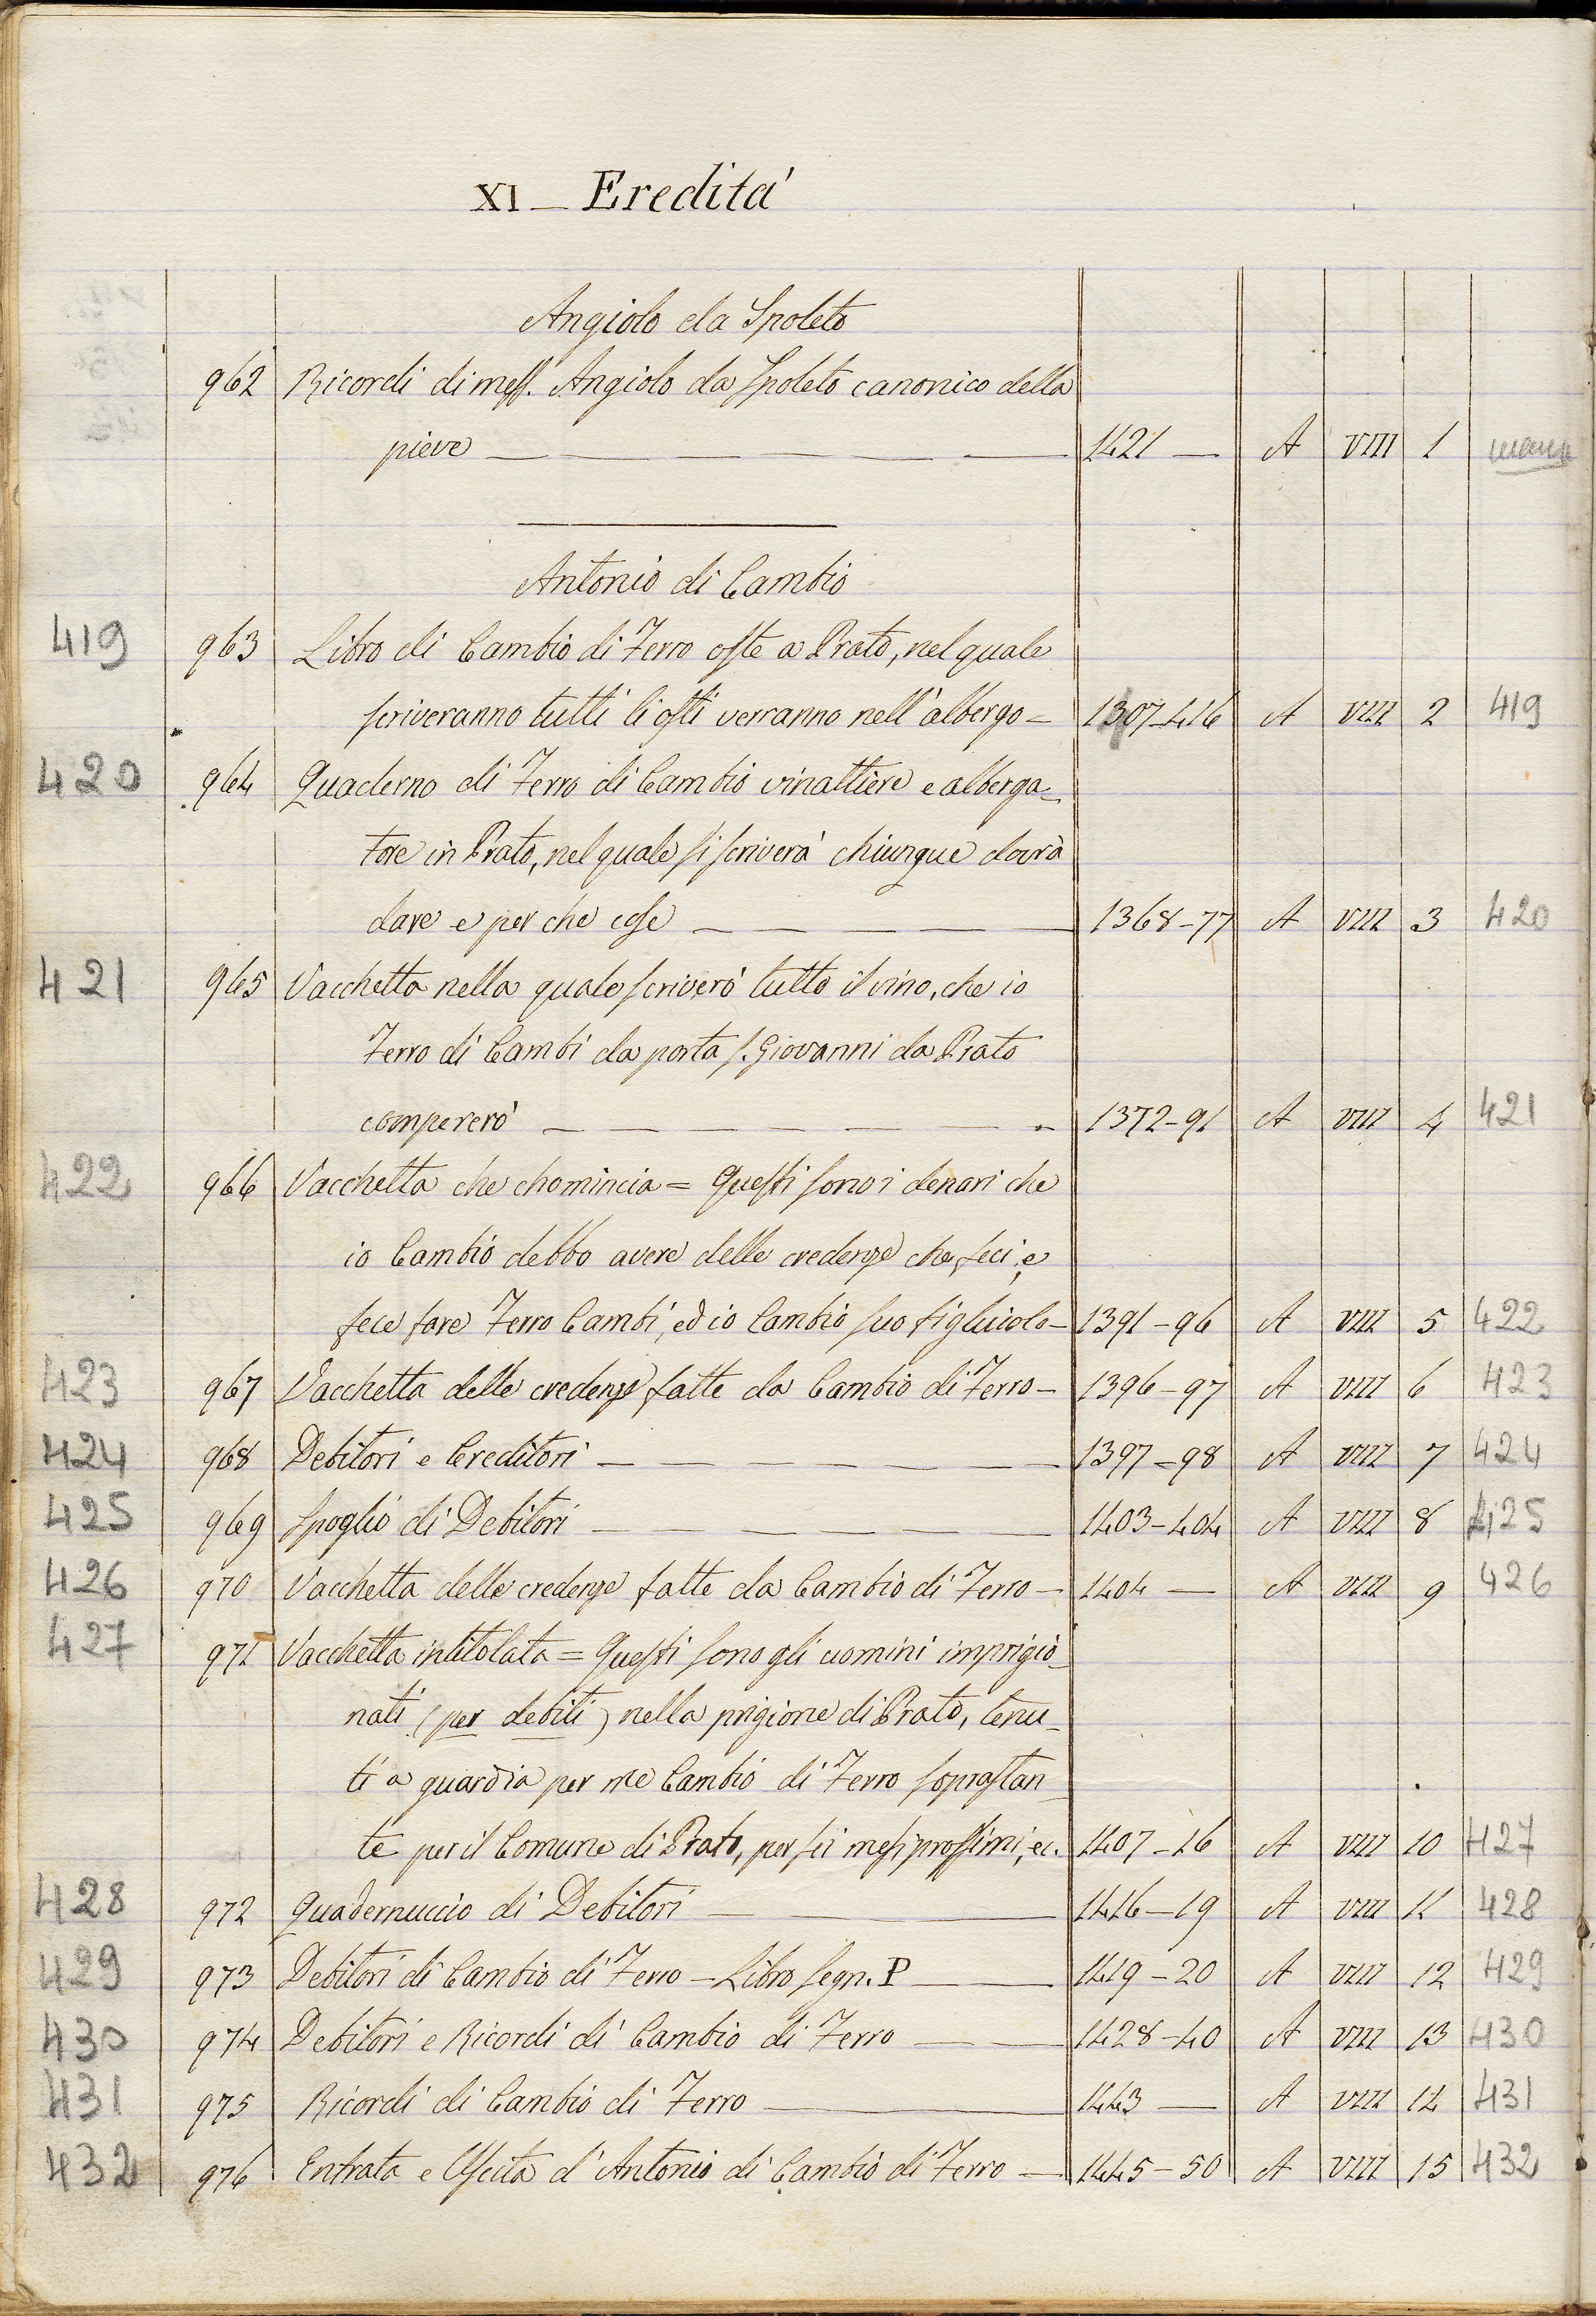 XI — Eredita'
Angiolo da Spoleto
962 Ricordi di mess. Angiolo da Spoleto canonico della
pieve — — — — — 1421 — A VIII 1
Antonio di Cambio
419 963 Libro di Cambio di Ferro oste a Prato, nel quale
scriveranno tutti li osti verranno nell'albergo — 1407-416 A VIII 2 419
420 964 Quaderno di Ferro di Cambio vinattiere e alberga-
tore in Prato, nel quale si scriverà chiunque dovrà
dare e per che cose — — — — — 1368-77 A VIII 3 420
421 965 Vacchetta nella quale scriverò tutto il vino, che io
Ferro di Cambi da porta S. Giovanni da Prato
compererò — — — — — 1372-91 A VIII 4 421
422 966 Vacchetta che chomincia = Questi sono i denari che
io Cambio debbo avere delle credenze che feci, e
fece fare Ferro Cambi, ed io Cambio suo figliuolo — 1391-96 A VIII 5 422
423 967 Vacchetta delle credenze fatte da Cambio di Ferro — 1396-97 A VIII 6 423
424 968 Debitori e Creditori — — — — — 1397-98 A VIII 7 424
425 969 Spoglio di Debitori — — — — — 1403-404 A VIII 8 425
426 970 Vacchetta delle credenze fatte da Cambio di Ferro — 1404 — A VIII 9 426
427 971 Vacchetta intitolata = Questi sono gli uomini imprigio-
nati (per debiti) nella prigione di Prato, tenu-
ti a guardia per me Cambio di Ferro soprastan-
te per il Comune di Prato, per sei mesi prossimi, ec. 1407-16 A VIII 10 427
428 972 Quadernuccio di Debitori — — 1416-19 A VIII 11 428
429 973 Debitori di Cambio di Ferro — Libro segn. P — — 1419-20 A VIII 12 429
430 974 Debitori e Ricordi di Cambio di Ferro — — 1428-40 A VIII 13 430
431 975 Ricordi di Cambio di Ferro — 1443 — A VIII 14 431
432 976 Entrata e Uscita d'Antonio di Cambio di Ferro — 1445-50 A VIII 15 432